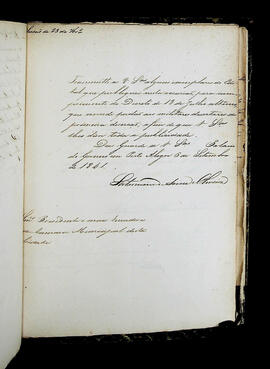 Transmitto a V. S.as alguns exemplares do Edi-
tal que publiquei nesta occasião para cum-
primento do Decreto de 18 de Julho ultimo,
que concede perdão aos militares desertores de
primeira deserção, a fim de que V. S.as
lhes dem toda a publicidade.
Deos Guarde a V. S.as Palacio
do Governo em Porto Alegre 5 de Setembro
de 1841.
Saturnino de Souza e Oliveira
Snr.es Presidente e mais Vereadores
da Camara Municipal desta
Cidade